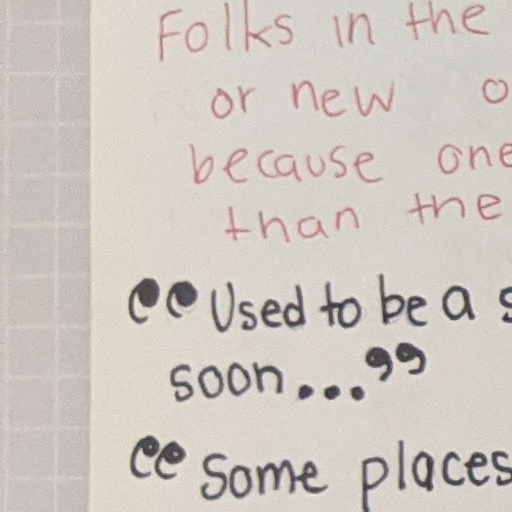 Folks in the
or new
because one
than the
“Used to be a
soon...”
“Some places